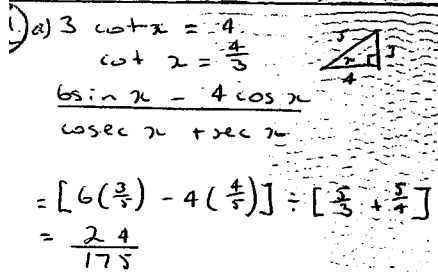 1) a) 3 cot x = 4
cot x = 4/3
5 3 x 4
6 sin x - 4 cos x
cosec x + sec x
= [6(3/5) - 4(4/5)] ÷ [5/3 + 5/4]
= 24/175